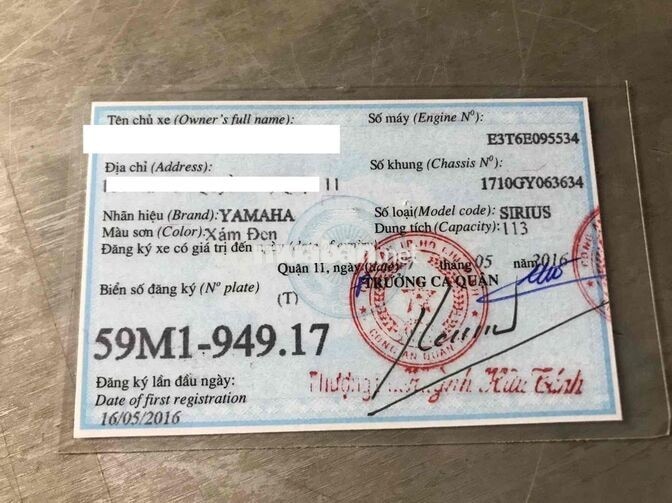 Tên chủ xe (Owner's full name):
Số máy (Engine Nº):
E3T6E095534
Địa chỉ (Address):
11
Số khung (Chassis Nº):
1710GY063634
Nhãn hiệu (Brand): YAMAHA
Số loại (Model code): SIRIUS
Màu sơn (Color): Xám Đen
Dung tích (Capacity): 113
Đăng ký xe có giá trị đến ngày (date of expiry)
Quận 11, ngày (date) tháng 05 năm 2016
TRƯỞNG CA QUẬN
Biển số đăng ký (Nº plate)
(T)
59M1-949.17
CÔNG AN QUẬN
Đăng ký lần đầu ngày:
Date of first registration
16/05/2016
Thượng Huỳnh Hữu Trinh